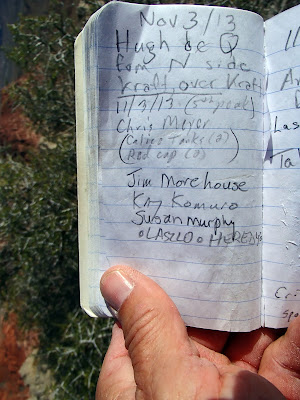 Nov 3/13
Hugh de Q
from N side
Kraft over Kraft
11/3/13 (5th peak)
Chris Meyer
(Calico Tanks (2)
Red cap (2))
Jim Morehouse
Kay Komuro
Susan Murphy
LASZLO HEREDY